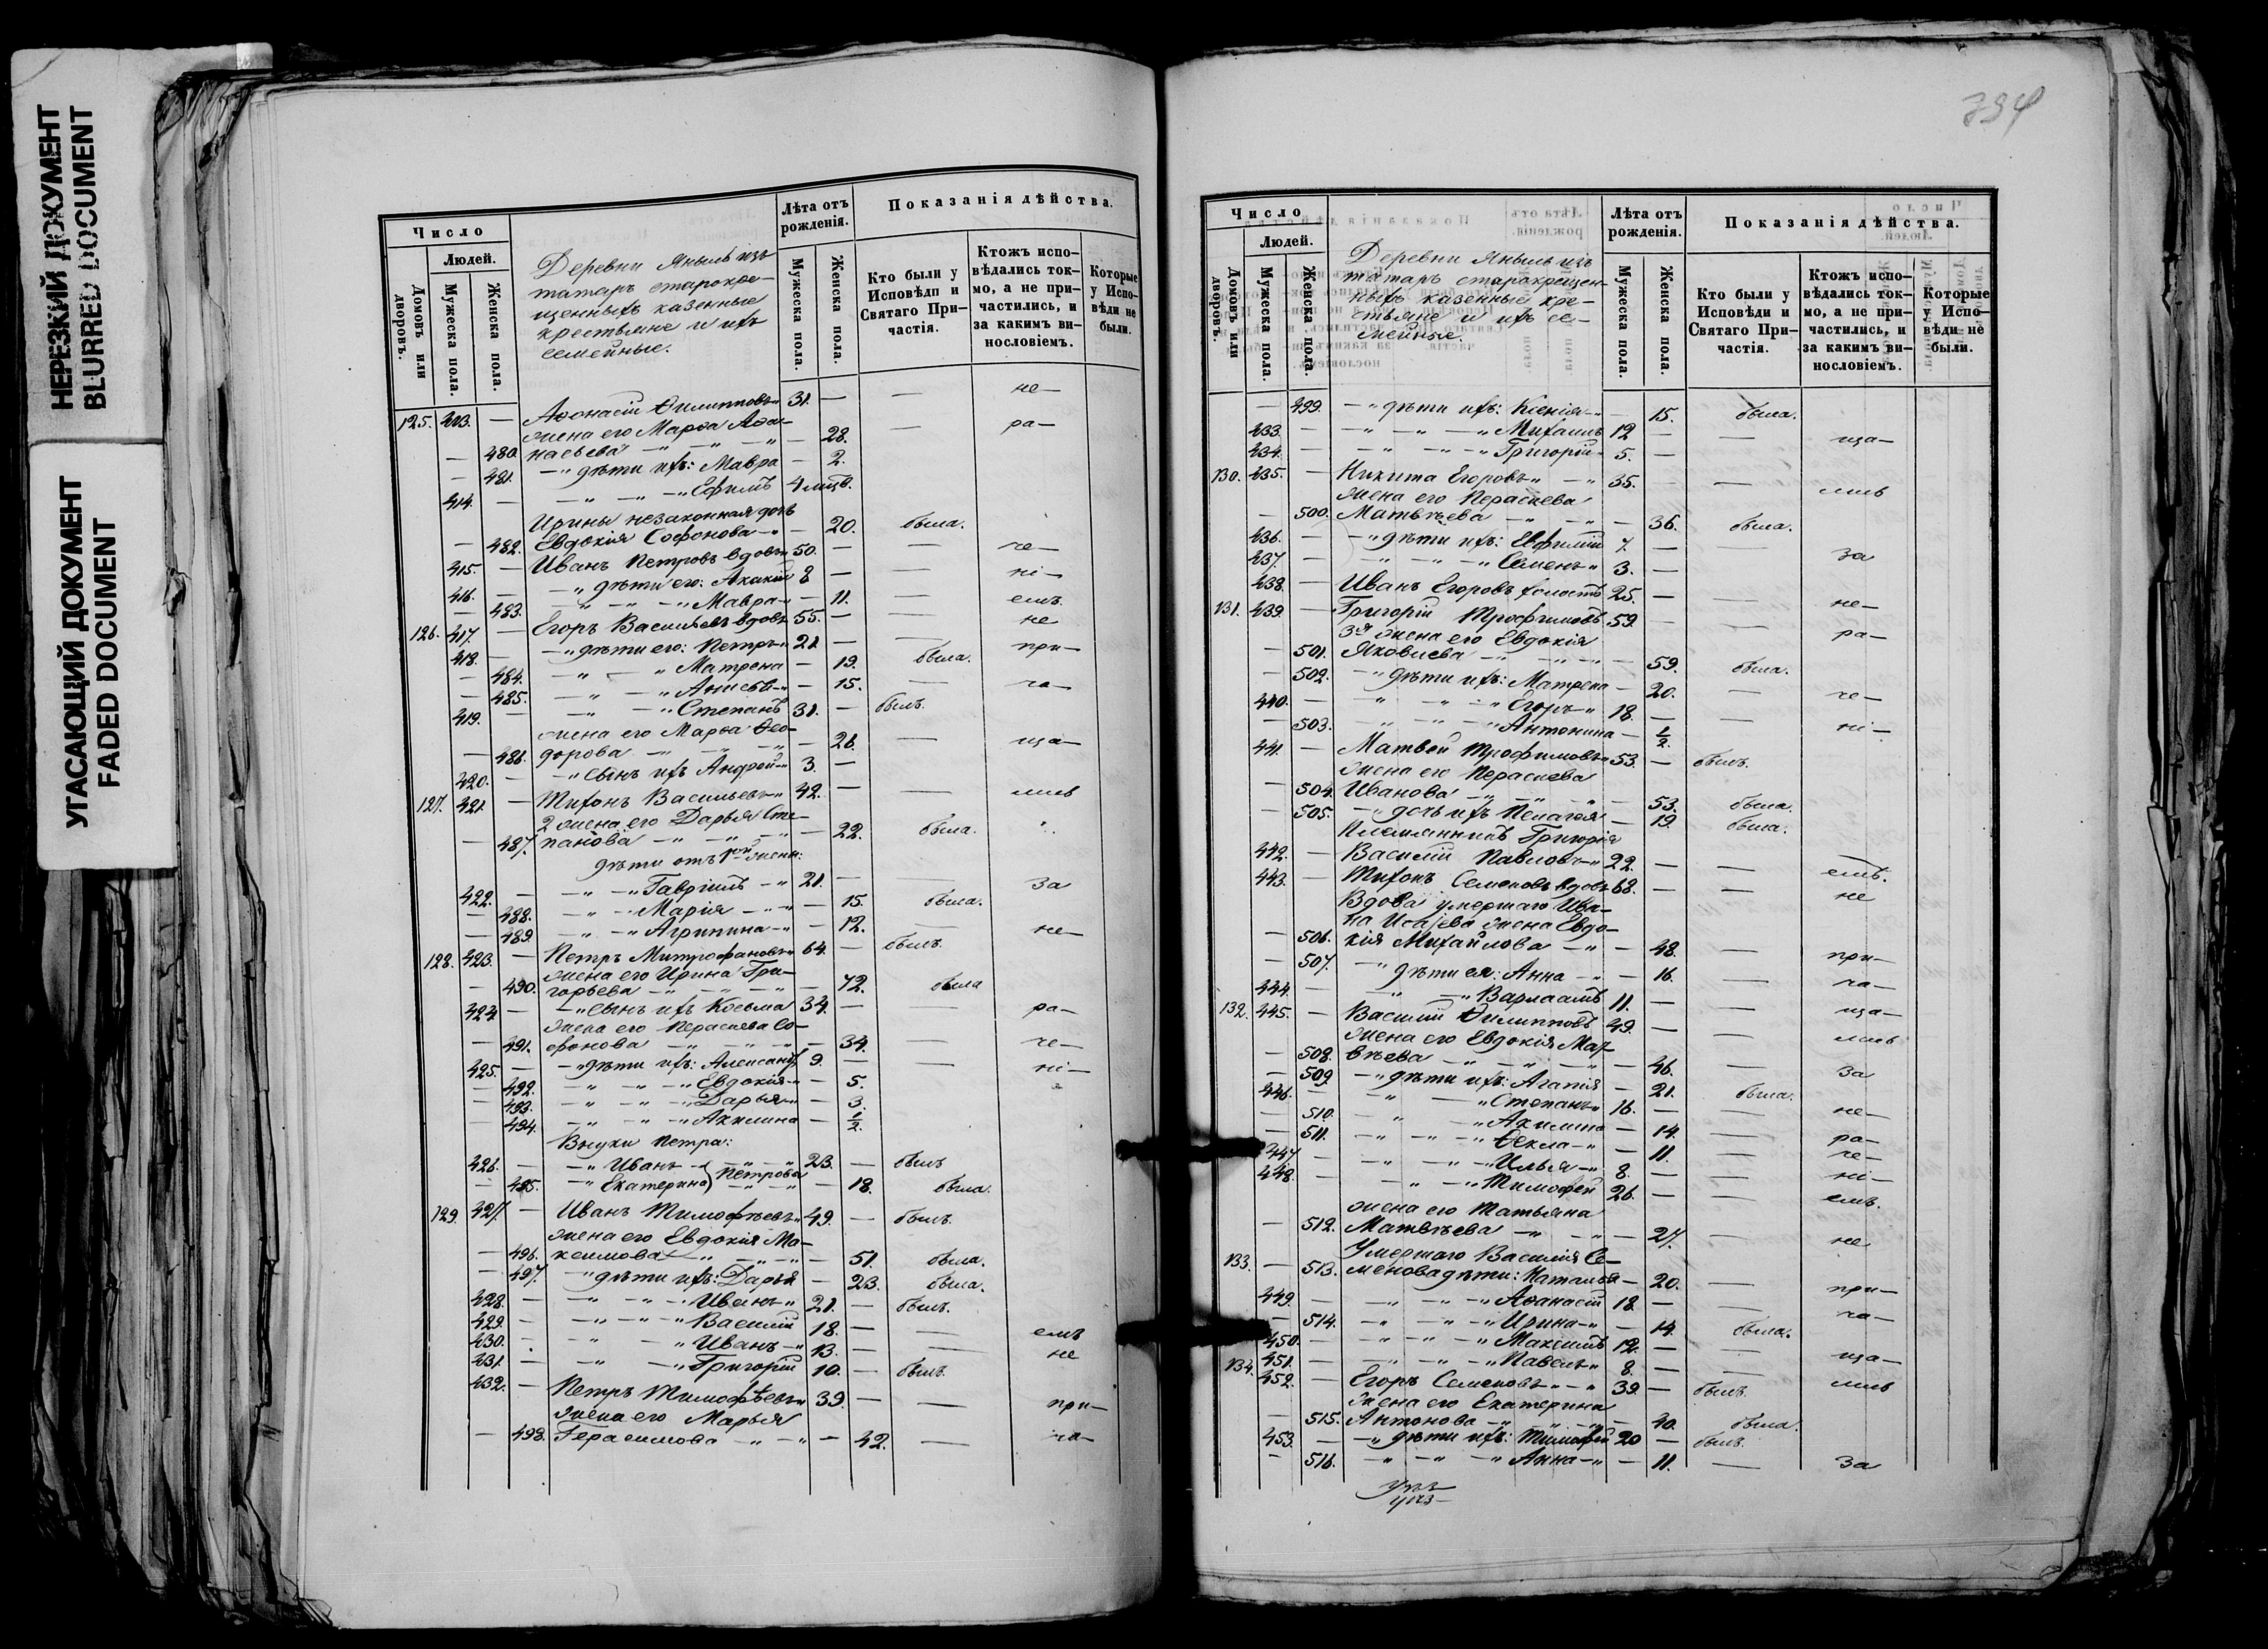 НЕРЕЗКИЙ ДОКУМЕНТ
BLURRED DOCUMENT
УГАСАЮЩИЙ ДОКУМЕНТ
FADED DOCUMENT
Число
Людей.
Домовъ или дворовъ.
Мужеска пола.
Женска пола.
Деревни Яныль изъ
татаръ старокре-
щенныхъ казенные
крестьяне и ихъ
семейные.
Лѣта отъ рожденія.
Мужеска пола.
Женска пола.
Показанія дѣйства.
Кто были у Исповѣди и Святаго При-частія.
Ктожъ испо-вѣдались ток-мо, а не при-частились, и за какимъ ви-нословіемъ.
Которые у Испо-вѣди не были.
125. 413. — Аѳонасій Филипповъ 31. — — не—
жена его Марѳа Аѳа-
— 480. насьева — 28. — ра—
— 481. — дѣти ихъ: Мавра — 2.
414. — Ефимъ 4 мѣс.
Ирины незаконная дочь
— 482. Евдокія Софонова — 20. была.
415. — Иванъ Петровъ вдовъ 50. — — че—
416. — дѣти его: Акакій 8 — — ні—
— 483. Мавра — 11. — емъ.
126. 417. — Егоръ Васильевъ вдовъ 55. — — не
418. — дѣти его: Петръ 21 — — при—
— 484. Матрена — 19. была.
— 485. Анисья — 15. — ча—
419. — Степанъ 31. — былъ.
жена его Марѳа Ѳео-
— 486. дорова — 26. — ща—
420. — сынъ ихъ Андрей 3. —
127. 421. — Тихонъ Васильевъ 42. — — лись
2 жена его Дарья Сте-
— 487. панова — 22. была.
дѣти отъ 1-ой жены:
422. — Гавріилъ 21. — — за
— 488. Марія — 15. была.
— 489. Агрипина — 12. — не—
128. 423. — Петръ Митрофановъ 64. — былъ.
жена его Ирина Гри-
— 490. горьева — 72. была
424. — сынъ ихъ Косьма 34. — — ра—
жена его Параскева Со-
— 491. фонова — 34. — че—
425. — дѣти ихъ: Александръ 9. — — ні—
— 492. Евдокія — 5.
— 493. Дарья — 3.
— 494. Акилина — 1/2.
Внуки Петра:
426. — Иванъ } Петровы 23. — былъ
— 495. Екатерина } — 18. была.
129. 427. — Иванъ Тимофѣевъ 49. — былъ.
жена его Евдокія Ма-
— 496. ксимова — 51. была.
— 497. дѣти ихъ: Дарья — 23. была.
428. — Иванъ 21. — былъ.
429. — Василій 18. —
430. Иванъ 13. — — емъ
431. — Григорій 10. — былъ. не
432. — Петръ Тимофѣевъ 39. — — при—
жена его Марья
— 498. Герасимова — 42. — ча—
394
Число
Людей.
Домовъ или дворовъ.
Мужеска пола.
Женска пола.
Деревни Яныль изъ
татаръ старокрещен-
ныхъ казенные кре-
стьяне и ихъ се-
мейные.
Лѣта отъ рожденія.
Мужеска пола.
Женска пола.
Показанія дѣйства.
Кто были у Исповѣди и Святаго При-частія.
Ктожъ испо-вѣдались ток-мо, а не при-частились, и за какимъ ви-нословіемъ.
Которые у Испо-вѣди не были.
— 499. — дѣти ихъ: Ксенія — 15. была.
433. — Михаилъ 12 — — ща—
434. — Григорій 5. —
130. 435. — Никита Егоровъ 35. — — лись
жена его Параскева
— 500. Матвѣева — 36. была.
436. — дѣти ихъ: Евфимій 7. — — за
437. — Семенъ 3. —
438. — Иванъ Егоровъ холостъ 25. — — не—
131. 439. — Григорій Трофимовъ 59. — — ра—
3я жена его Евдокія
— 501. Яковлева — 59. была.
— 502. дѣти ихъ: Матрена — 20. — че—
440. — Егоръ 18. —
— 503. Антонина — 1/2. ні—
441. — Матвей Трофимовъ 53. — былъ.
жена его Параскева
— 504. Иванова — 53. была.
— 505. дочь ихъ Пелагея — 19. была.
Племянникъ Григорія
442. — Василій Павловъ 22. — — емъ.
443. — Тихонъ Семеновъ вдовъ 68. — — не
Вдова умершаго Ива-
на Исаева жена Евдо-
— 506. кія Михайлова — 48. — при—
— 507. дѣти ея: Анна — 16. — ча—
444. — Варлаамъ 11. — — ща—
132. 445. — Василій Филипповъ 49. — — лись
жена его Евдокія Мат-
— 508. вѣева — 46. — за
— 509 дѣти ихъ: Агапія — 21. была.
446. — Степанъ 16. — — не—
— 510. Акилина — 14. — ра—
— 511. Ѳекла — 11. — че—
447 — Илья 8. — — ні—
448. — Тимофей 26. — — емъ.
жена его Татьяна
— 512. Матвѣева — 27. — не
Умершаго Василія Се-
133. — 513. менова дѣти: Наталья — 20. — при—
449. — Аѳанасій 18. — — ча—
— 514. Ирина — 14. была.
450. — Максимъ 12. — — ща—
451. — Павелъ 8. —
134. 452. — Егоръ Семеновъ 39. — былъ. лись
жена его Екатерина
— 515. Антонова — 40. была.
453. — дѣти ихъ: Тимофей 20 — былъ.
— 516. Анна — 11. — за